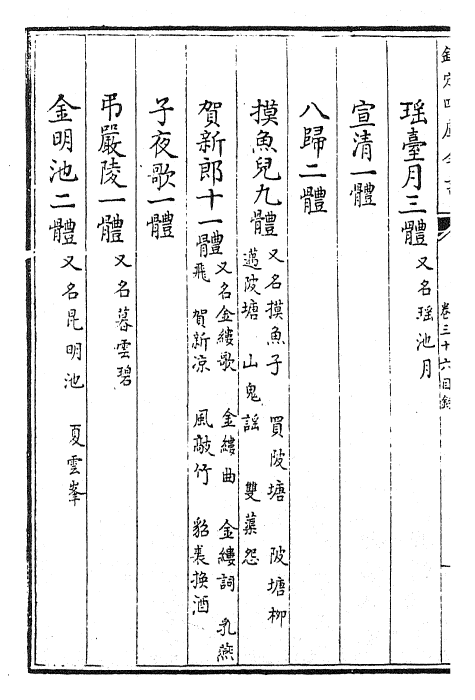 欽定四庫全書
卷三十六目錄
瑶臺月三體 又名瑶池月
宣清一體
八歸二體
摸魚兒九體 又名摸魚子 買陂塘 陂塘柳
邁陂塘 山鬼謡 雙蕖怨
賀新郎十一體 又名金縷歌 金縷曲 金縷詞 乳燕
飛 賀新凉 風敲竹 貂裘換酒
子夜歌一體
弔嚴陵一體 又名暮雲碧
金明池二體 又名昆明池 夏雲峯